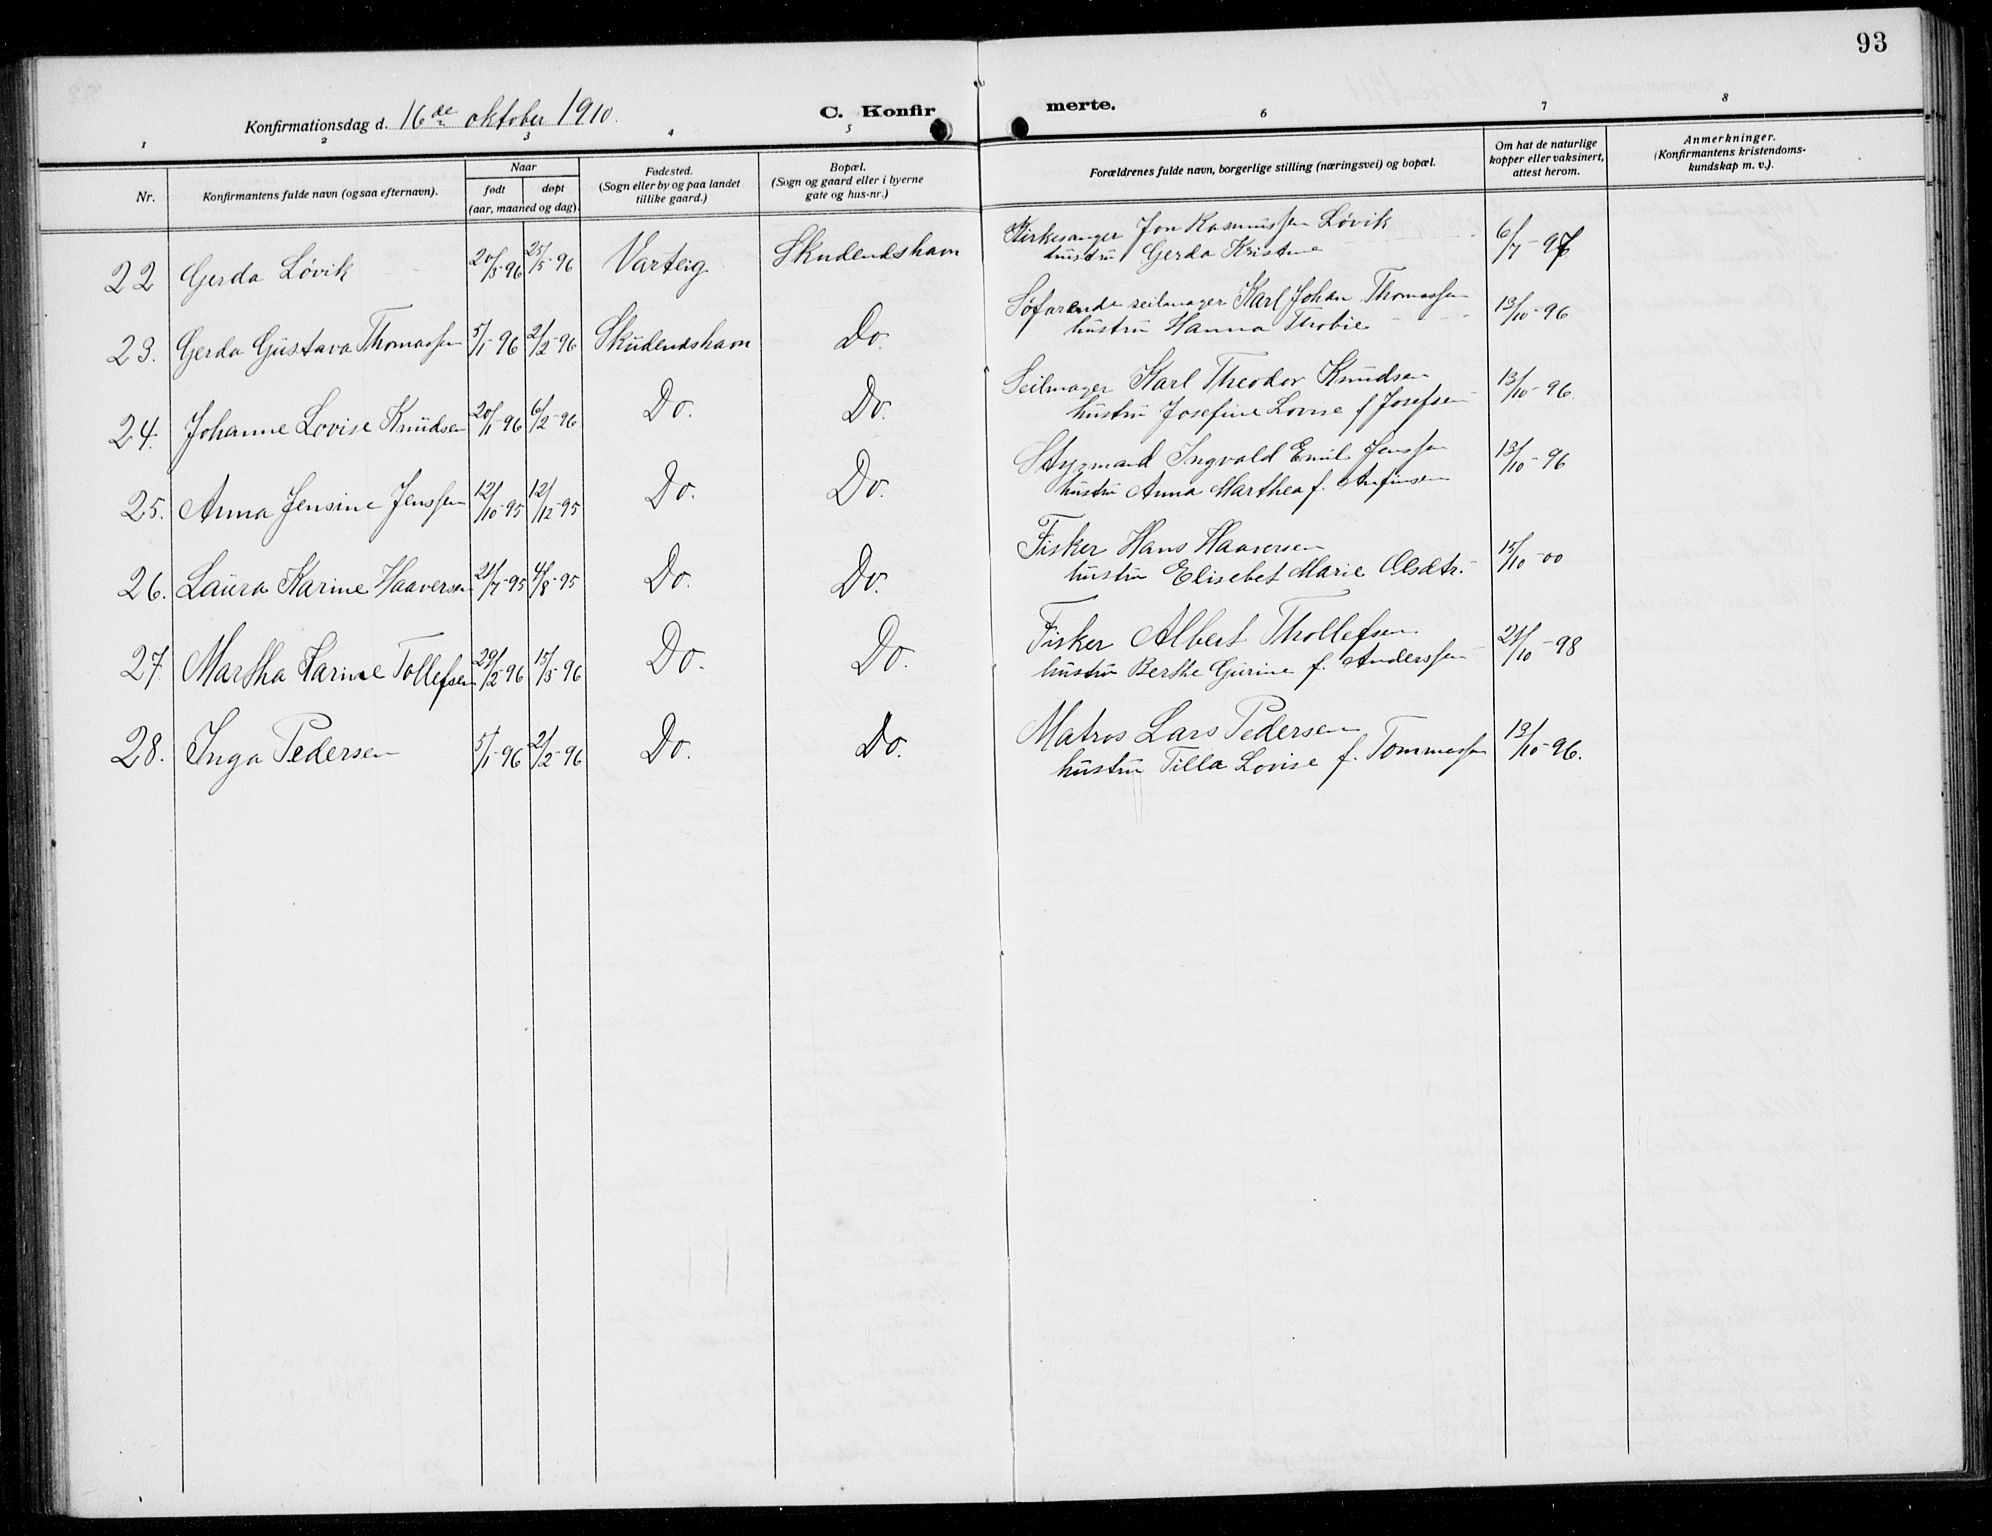 93
Konfirmationsdag d. 16de oktober 1910.
C. Konfir merte.
1 2 3 4 5 6 7 8
Nr.
Konfirmantens fulde navn (ogsaa efternavn).
Naar
født døpt
(aar, maaned og dag).
Fødested.
(Sogn eller by og paa landet
tillike gaard.)
Bopæl.
(Sogn og gaard eller i byerne
gate og hus-nr.)
Forældrenes fulde navn, borgerlige stilling (næringsvei) og bopæl.
Om hat de naturlige
kopper eller vaksinert,
attest herom.
Anmerkninger.
(Konfirmantens kristendoms-
kundskap m. v.).
22 Gerda Løvik 20/3-96 25/5-96 Varteig Skudendshavn Kirkesanger Jon Rasmussen Løvik 6/7-97
hustru Gerda Kristine
23. Gerda Gustava Thomassen 5/1-96 2/2-96 Skudendshavn Do. Søfarende seilmager Karl Johan Thomassen 13/10-96
hustru Hanna Thobie
24. Johanne Lovise Knudsen 20/1-96 6/2-96 Do. Do. Seilmager Karl Theodor Knudsen 13/10-96.
hustru Josefine Lovise f Josefsen
25. Anna Jensine Jenssen 12/10-95 12/12-95 Do. Do. Styrmand Ingvald Emil Jenssen 13/10-96
hustru Anna Marthea f. Anfinsen
26. Laura Karine Haaversen 21/7-95 4/8-95 Do. Do. Fisker Hans Haaversen 15/10-00
hustru Elisebet Marie Olsdtr.
27. Martha Karine Tollefsen 29/2-96 15/3-96 Do. Do. Fisker Albert Thollefsen 21/10-98
hustru Berthe Gurine f. Anderssen
28. Inga Pedersen 5/1-96 2/2-96 Do. Do. Matros Lars Pedersen 13/10-96.
hustru Tilla Lovise f. Tommassen